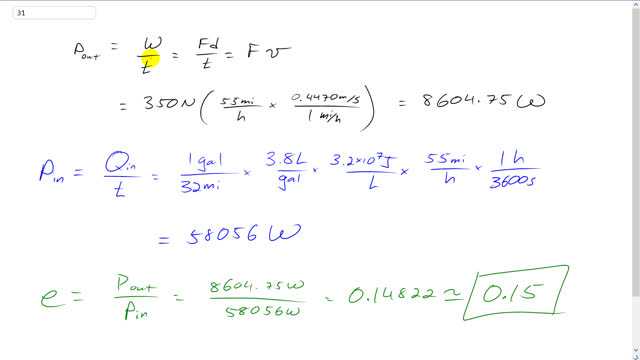 31
P_out = W/t = Fd/t = Fv
= 350N (55mi/h × 0.4470m/s / 1 mi/h) = 8604.75 W
P_in = Q_in/t = 1 gal/32mi × 3.8L/gal × 3.2×10⁷J/L × 55mi/h × 1h/3600s
= 58056 W
e = P_out/P_in = 8604.75W/58056W = 0.14822 ≃ 0.15